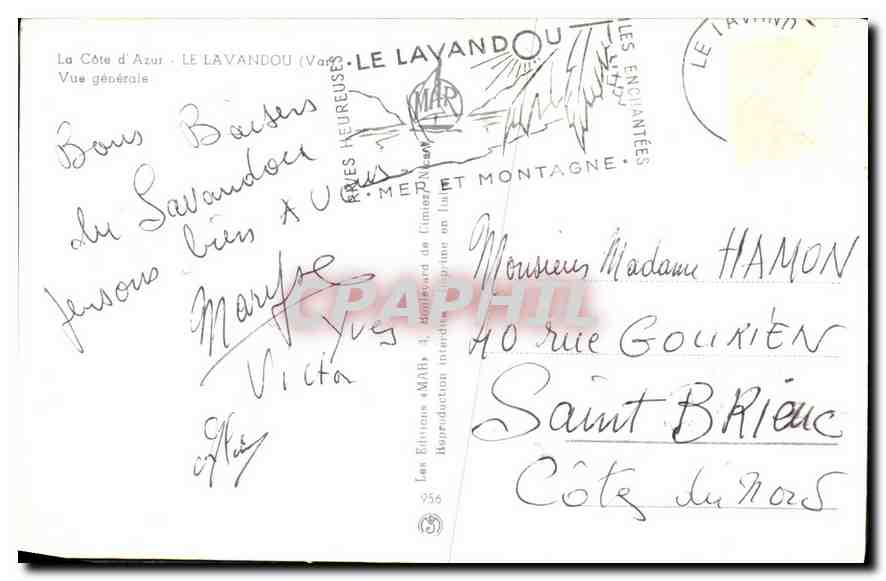 La Côte d'Azur - LE LAVANDOU (Var)
Vue générale
LE LAVANDOU
RIVES HEUREUSES
MAR
ILES ENCHANTÉES
MER ET MONTAGNE
LE LAVAND
Bons Baisers
du Lavandou
pensons bien A Vous
Maryse
Yves
Victor
Monsieur Madame HAMON
40 rue GOURIEN
Saint BRIEUC
Côtes du Nord
Les Editions «MAR» 4, Boulevard de Cimiez, Nice
Reproduction interdite Imprimé en Italie
956
CPAPHIL